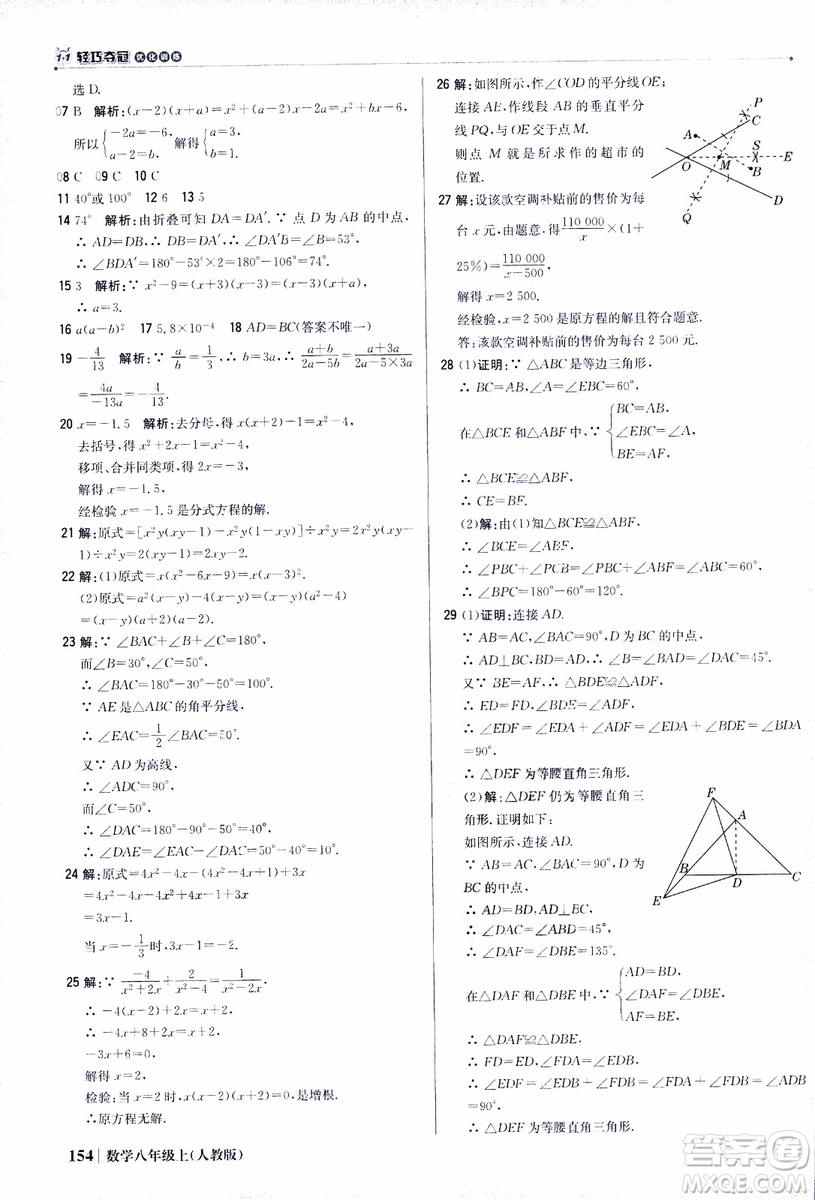 1+1 轻巧夺冠 优化训练
选 D.
07 B 解析:(x-2)(x+a)=x²+(a-2)x-2a=x²-6x+b,
所以{-2a=b, a-2=-6,
08 C 09 C 10 C
11 40°或100° 12 6 13 5
14 74° 解析:由折叠可知 DA=DA′.∵ 点 D 为AB 的中点,
∴ AD=DB,∴ DB=DA′,∴ ∠DA′B=∠B=53°,
∴ ∠BDA′=180°-53°×2=180°-106°=74°.
15 3 解析:∵ x²-9=(x+3)(x-3)=(x+3)(x-a),
∴ a=3.
16 a(a-b)² 17 5.8×10⁻⁴ 18 AD=BC(答案不唯一)
19 -4/13 解析:∵ a/b=1/3,∴ b=3a,∴ (a+b)/(2a-5b)=(a+3a)/(2a-5×3a)
=4a/(-13a)=-4/13.
20 x=-1.5 解析:去分母,得 x(x+2)-1=x²-4,
去括号,得 x²+2x-1=x²-4,
移项、合并同类项,得 2x=-3,
解得 x=-1.5,
经检验 x=-1.5 是分式方程的解.
21 解:原式=[x²y(xy-1)-x²y(1-xy)]÷x²y=x²y(2xy-
1)÷x²y=
22 解:(1)原式=x(x²-6x+9)=x(x-3)².
(2)原式=a²(x-y)-4(x-y)=(x-y)(a²-4)
=(x-y)(a+2)(a-2).
23 解:∵ ∠BAC+∠B+∠C=180°,
而∠B=30°,∠C=50°,
∴ ∠BAC=180°-30°-50°=100°.
∵ AE 是△ABC 的角平分线,
∴ ∠EAC=1/2∠BAC=50°.
又∵ AD 为高线,
∴ ∠ADC=90°,
而∠C=50°,
∴ ∠DAC=180°-90°-50°=40°,
∴ ∠DAE=∠EAC-∠DAC=50°-40°=10°.
24 解:原式=4x²-4x-(4x²-4x+x-1)+3x
=4x²-4x-4x²+4x-x+1+3x
=2x+1.
当 x=-1/3时,原式=1/3.
25 解:∵ -4/(x²+2x)+2/(x²-4)=-1/(x²-2x),
∴ -4(x-2)+2x=-(x+2),
∴ -4x+8+2x=-x-2,
∴ x=
解得 x=
检验:当 x=2 时,x(x²-4)=0,x=2 是增根.
∴原方程无解.
26 解:如图所示,作∠COD的平分线OE;
连接 AB,作线段 AB 的垂直平分
线PQ,与OE交于点M.
则点 M 就是所求作的超市的
位置.
P
C
A
S
E
O
M
B
D
Q
27 解:设该款空调补贴前的售价为每
台 x 元,由题意,得110 000/x×(1+
25%)=110 000/(x-500),
解得 x=2 500.
经检验,x=2 500 是原方程的解且符合题意.
答:该款空调补贴前的售价为每台 2 500 元.
28 (1)证明:∵ △ABC 是等边三角形,
∴ BC=AB,∠A=∠CBE=60°,
在△BCE 和△ABF 中,∵ {BC=AB, ∠CBE=∠A, BE=AF,
∴ △BCE≌△ABF,
∴ CE=BF.
(2)解:由(1)知△BCE≌△ABF,
∴ ∠BCE=∠ABF,
∴ ∠PBC+∠PCB=∠PBC+∠ABF=∠ABC=60°,
∴ ∠BPC=180°-60°=120°.
29 (1)证明:连接 AD.
∵ AB=AC,∠BAC=90°,D 为 BC 的中点,
∴ AD⊥BC,BD=AD,∴ ∠B=∠DAC=45°.
又∵ BE=AF,∴ △BDE≌△ADF,
∴ ED=FD,∠BDE=∠ADF,
∴ ∠EDF=∠EDA+∠ADF=∠EDA+∠BDE=∠BDA
=90°,
∴ △DEF 为等腰直角三角形.
(2)解:△DEF 仍为等腰直角三
角形.证明如下:
如图所示,连接 AD.
∵ AB=AC,∠BAC=90°,D 为
BC 的中点,
∴ AD=BD,AD⊥BC,
∴ ∠DAC=∠ABD=45°,
∴ ∠DAF=∠DBE=135°.
F
A
B
D
C
E
在△DAF 和△DBE 中,∵ {AD=BD, ∠DAF=∠DBE, AF=BE,
∴ △DAF≌△DBE,
∴ FD=ED,∠FDA=∠EDB,
∴ ∠EDF=∠EDB+∠FDB=∠FDA+∠FDB=∠ADB
=90°.
∴ △DEF 为等腰直角三角形.
154 数学八年级上(人教版)
答案圈
MXQE.COM